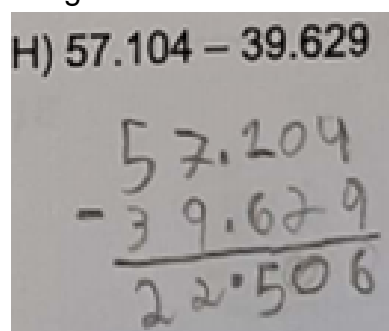 H) 57.104 – 39.629
57.104
- 39.629
22.506